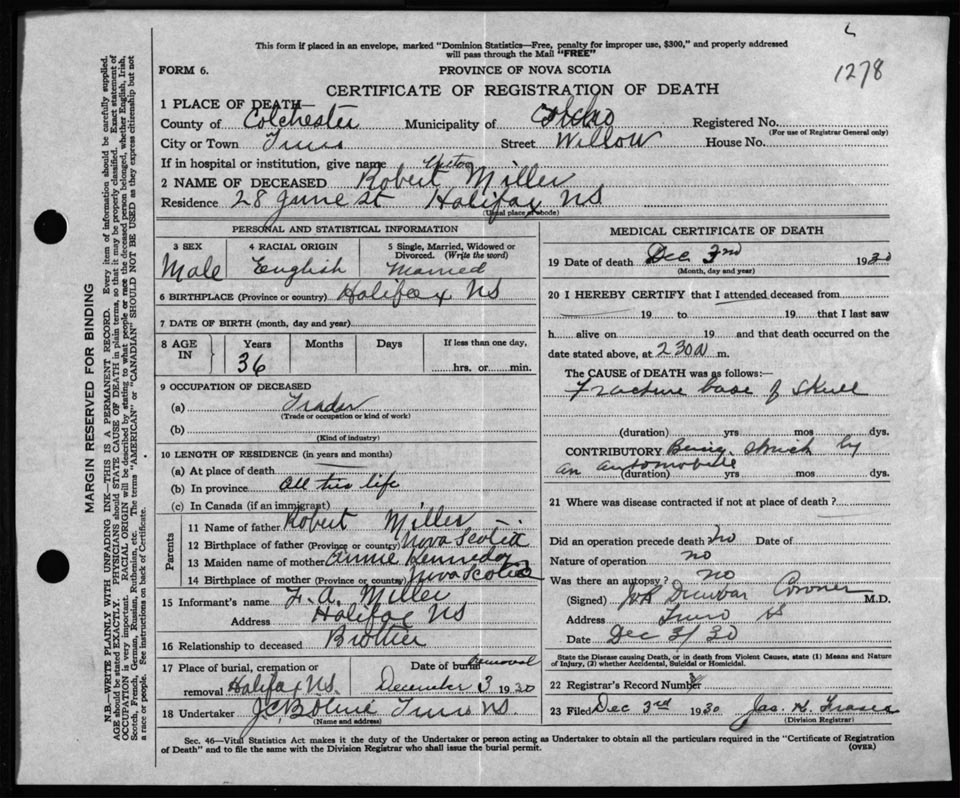 This form if placed in an envelope, marked "Dominion Statistics—Free, penalty for improper use, $300," and properly addressed
will pass through the Mail "FREE"
1278
FORM 6.
PROVINCE OF NOVA SCOTIA
CERTIFICATE OF REGISTRATION OF DEATH
1 PLACE OF DEATH—
County of Colchester Municipality of Registered No.
(For use of Registrar General only)
City or Town Truro Street Willow House No.
If in hospital or institution, give name
2 NAME OF DECEASED Robert Miller
Residence 28 June St Halifax NS
(Usual place of abode)
PERSONAL AND STATISTICAL INFORMATION
3 SEX 4 RACIAL ORIGIN 5 Single, Married, Widowed or
Divorced. (Write the word)
Male English Married
6 BIRTHPLACE (Province or country) Halifax NS
7 DATE OF BIRTH (month, day and year)
8 AGE IN Years Months Days If less than one day,
36 hrs. or min.
9 OCCUPATION OF DECEASED
(a) Trader
(Trade or occupation or kind of work)
(b)
(Kind of industry)
10 LENGTH OF RESIDENCE (in years and months)
(a) At place of death
(b) In province All his life
(c) In Canada (if an immigrant)
Parents
11 Name of father Robert Miller
12 Birthplace of father (Province or country) Nova Scotia
13 Maiden name of mother Annie Kennedy
14 Birthplace of mother (Province or country) Nova Scotia
15 Informant's name F. A. Miller
Address Halifax NS
16 Relationship to deceased Brother
17 Place of burial, cremation or Date of burial Removal
removal Halifax NS. December 3 1930
18 Undertaker Truro NS.
(Name and address)
MEDICAL CERTIFICATE OF DEATH
19 Date of death Dec 3rd 1930
(Month, day and year)
20 I HEREBY CERTIFY that I attended deceased from
19 to 19 that I last saw
h alive on 19 and that death occurred on the
date stated above, at 2 30 a m.
The CAUSE of DEATH was as follows:—
Fracture base of skull
(duration) yrs mos dys.
CONTRIBUTORY Being struck by
an automobile
(duration) yrs mos dys.
21 Where was disease contracted if not at place of death?
Did an operation precede death no Date of
Nature of operation no
Was there an autopsy? no
(Signed) Dunbar Coroner M.D.
Address Truro NS
Date Dec 3/30
State the Disease causing Death, or in death from Violent Causes, state (1) Means and Nature
of Injury, (2) whether Accidental, Suicidal or Homicidal.
22 Registrar's Record Number
23 Filed Dec 3rd 1930 Jas. H. Fraser
(Division Registrar)
Sec. 46—Vital Statistics Act makes it the duty of the Undertaker or person acting as Undertaker to obtain all the particulars required in the "Certificate of Registration
of Death" and to file the same with the Division Registrar who shall issue the burial permit.
(OVER)
MARGIN RESERVED FOR BINDING
N.B.—WRITE PLAINLY WITH UNFADING INK—THIS IS A PERMANENT RECORD. Every item of information should be carefully supplied.
AGE should be stated EXACTLY. PHYSICIANS should STATE CAUSE OF DEATH in plain terms, so that it may be properly classified. Exact statement of
OCCUPATION is very important. RACIAL ORIGIN will be described by stating to what people or race the deceased person belonged, whether English, Irish,
Scotch, French, German, Russian, Ruthenian, etc. The terms "AMERICAN" or "CANADIAN" SHOULD NOT BE USED as they express citizenship but not
a race or people. See instructions on back of Certificate.